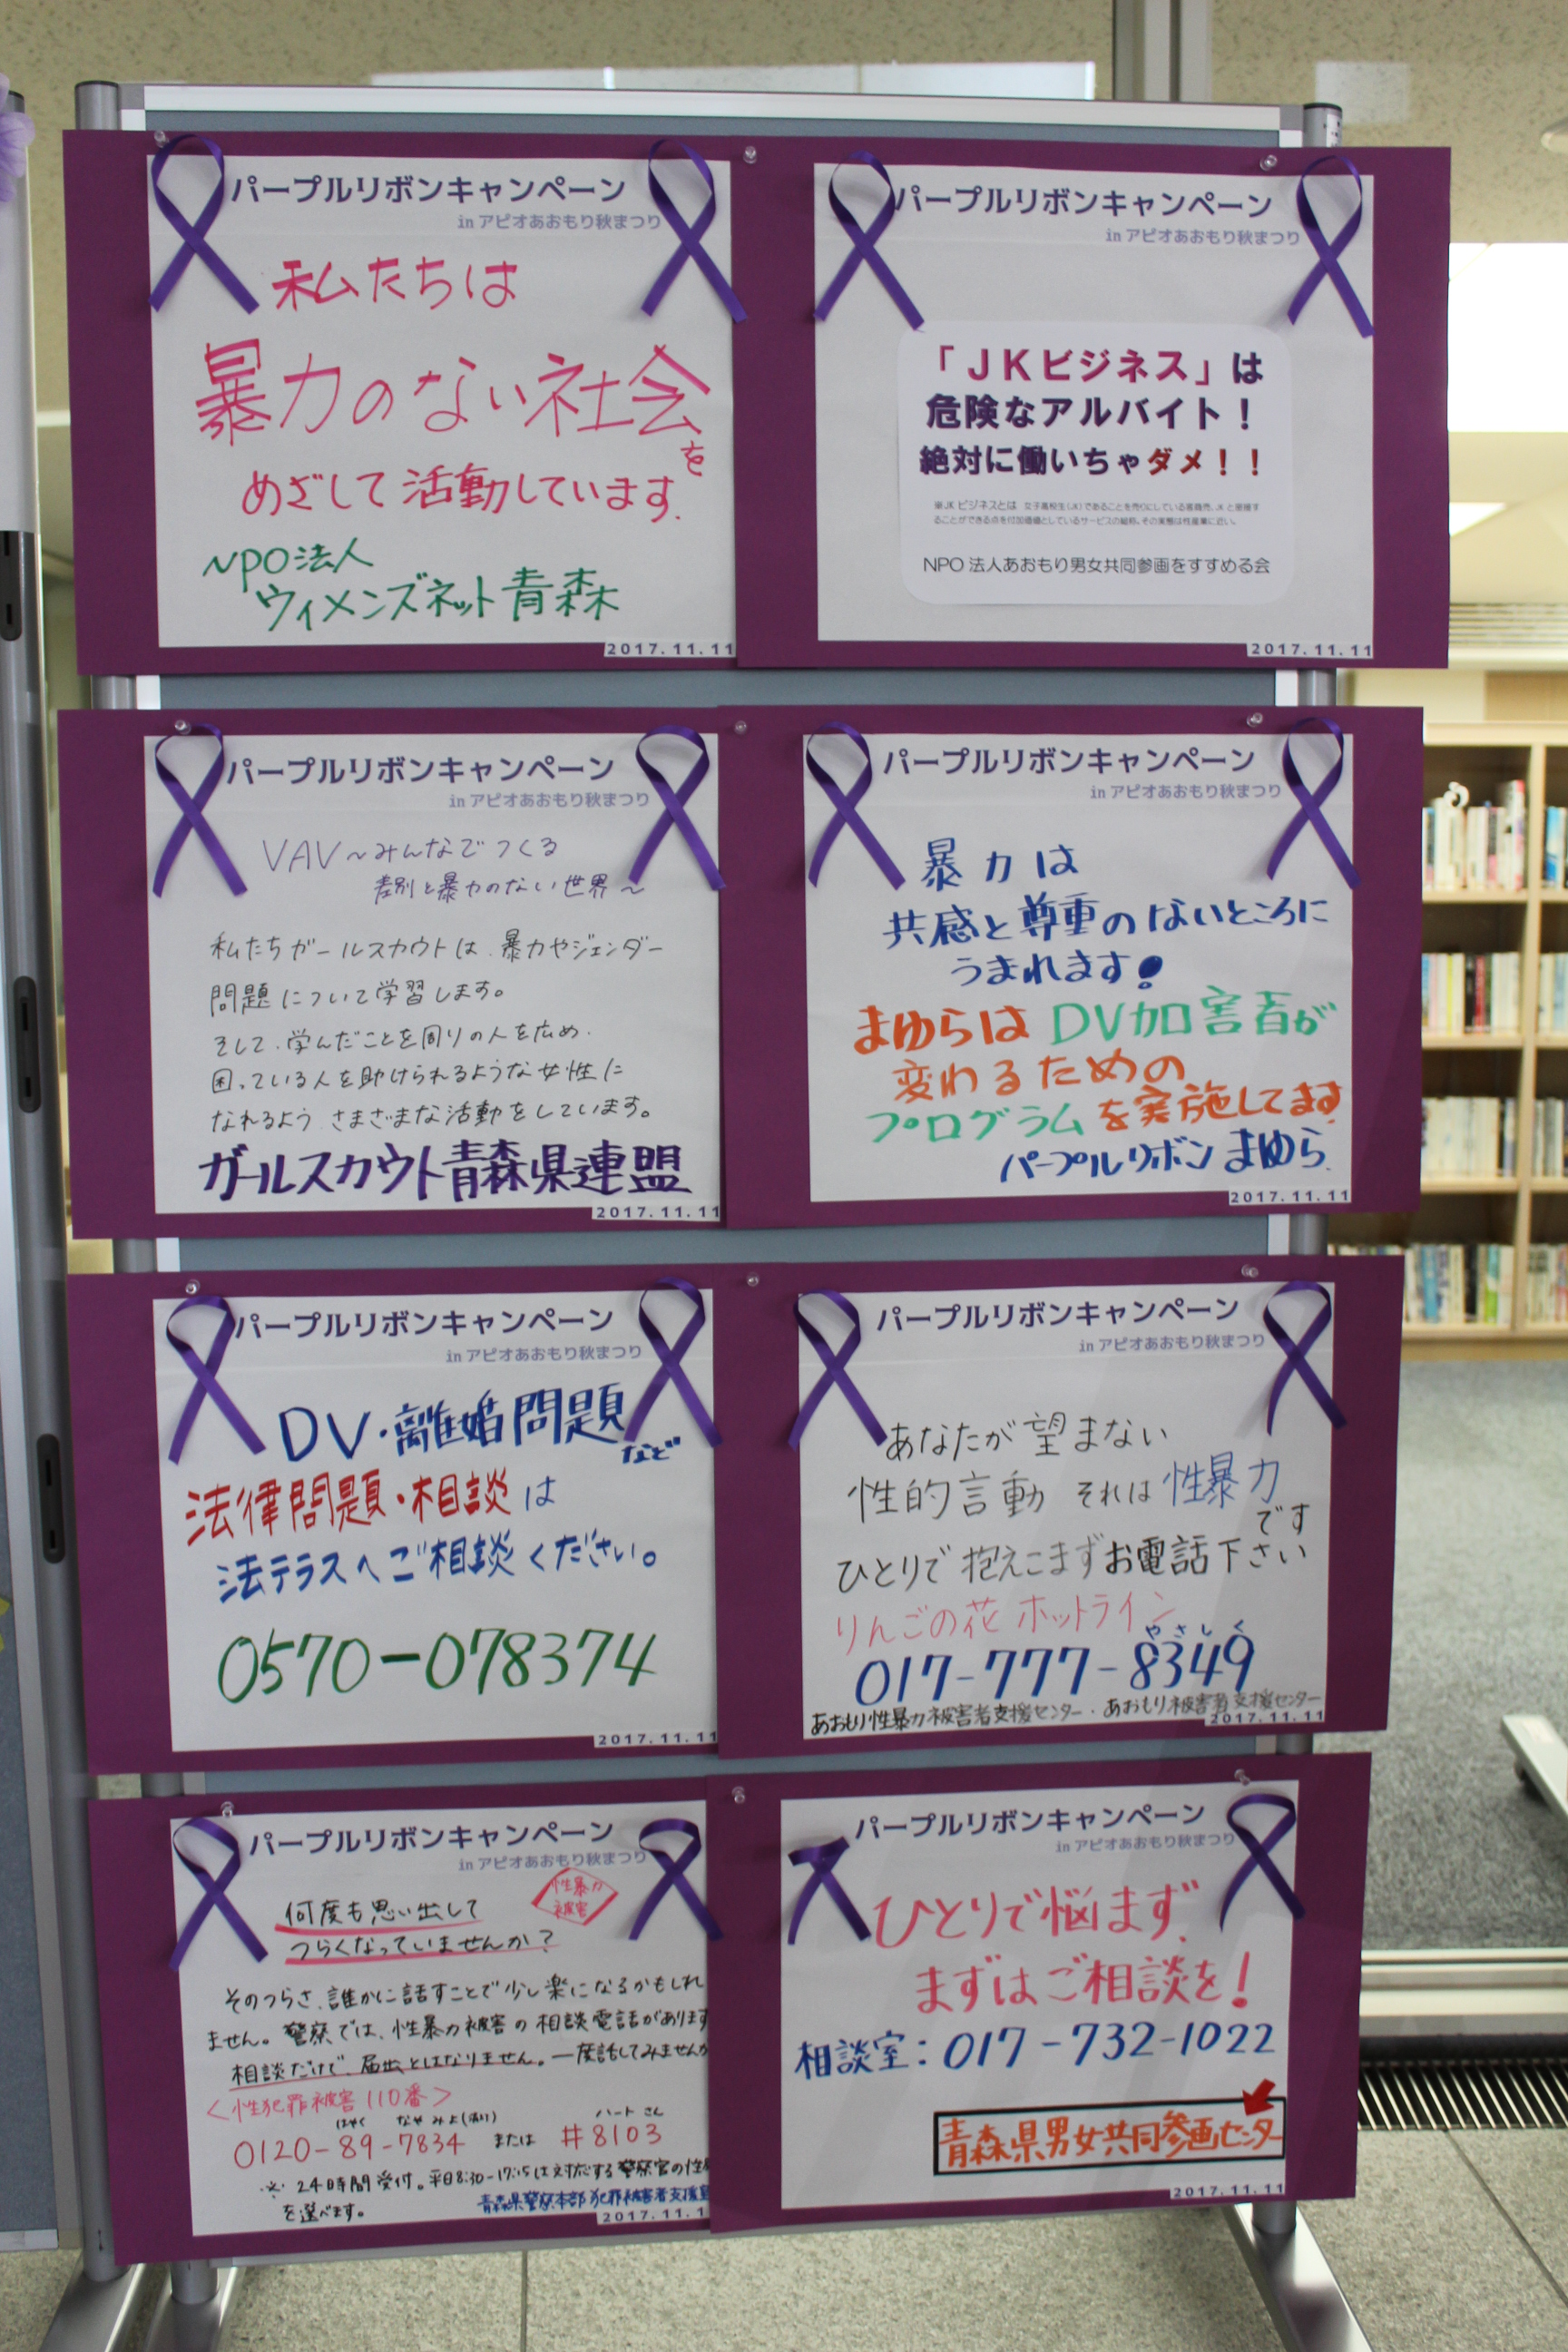 パープルリボンキャンペーン
in アピオあおもり秋まつり
私たちは
暴力のない社会を
めざして活動しています.
NPO法人
ウィメンズネット青森
2017.11.11
パープルリボンキャンペーン
in アピオあおもり秋まつり
「JKビジネス」は
危険なアルバイト！
絶対に働いちゃダメ！！
※JKビジネスとは 女子高校生(JK)であることを売りにしている
ることができる点を付加価値としているサービスの総称。その実態は性産業に近い。
NPO法人あおもり男女共同参画をすすめる会
2017.11.11
パープルリボンキャンペーン
in アピオあおもり秋まつり
VAV～みんなでつくる
差別と暴力のない世界～
私たちガールスカウトは、暴力やジェンダー
問題について学習します。
そして、学んだことを周りの人を広め、
困っている人を助けられるような女性に
なれるよう さまざまな活動をしています。
ガールスカウト青森県連盟
2017.11.11
パープルリボンキャンペーン
in アピオあおもり秋まつり
暴力は
共感と尊重のないところに
うまれます！
まゆらは DV加害者が
変わるための
プログラムを実施してます.
パープルリボンまゆら.
2017.11.11
パープルリボンキャンペーン
in アピオあおもり秋まつり
DV・離婚問題など
法律問題・相談は
法テラスへご相談ください。
0570-078374
2017.11.11
パープルリボンキャンペーン
in アピオあおもり秋まつり
あなたが望まない
性的言動 それは性暴力
です
ひとりで抱えこまずお電話下さい
りんごの花 ホットライン
やさしく
017-777-8349
あおもり性暴力被害者支援センター・あおもり被害者支援センター
2017.11.11
パープルリボンキャンペーン
in アピオあおもり秋まつり
性暴力
被害
何度も思い出して
つらくなっていませんか？
そのつらさ、誰かに話すことで少し楽になるかもしれ
ません。警察では、性暴力被害の相談電話があります
相談だけで、届出とはなりません。一度話してみませんか
<性犯罪被害110番>
はやく なやみよ ハートさん
0120-89-7834 または #8103
※ 24時間受付。平日8:30-17:15は対応する警察官の性別
を選べます。
青森県警察本部犯罪被害者支援室
2017.11.1
パープルリボンキャンペーン
in アピオあおもり秋まつり
ひとりで悩まず、
まずはご相談を！
相談室：017-732-1022
青森県男女共同参画センター
2017.11.11